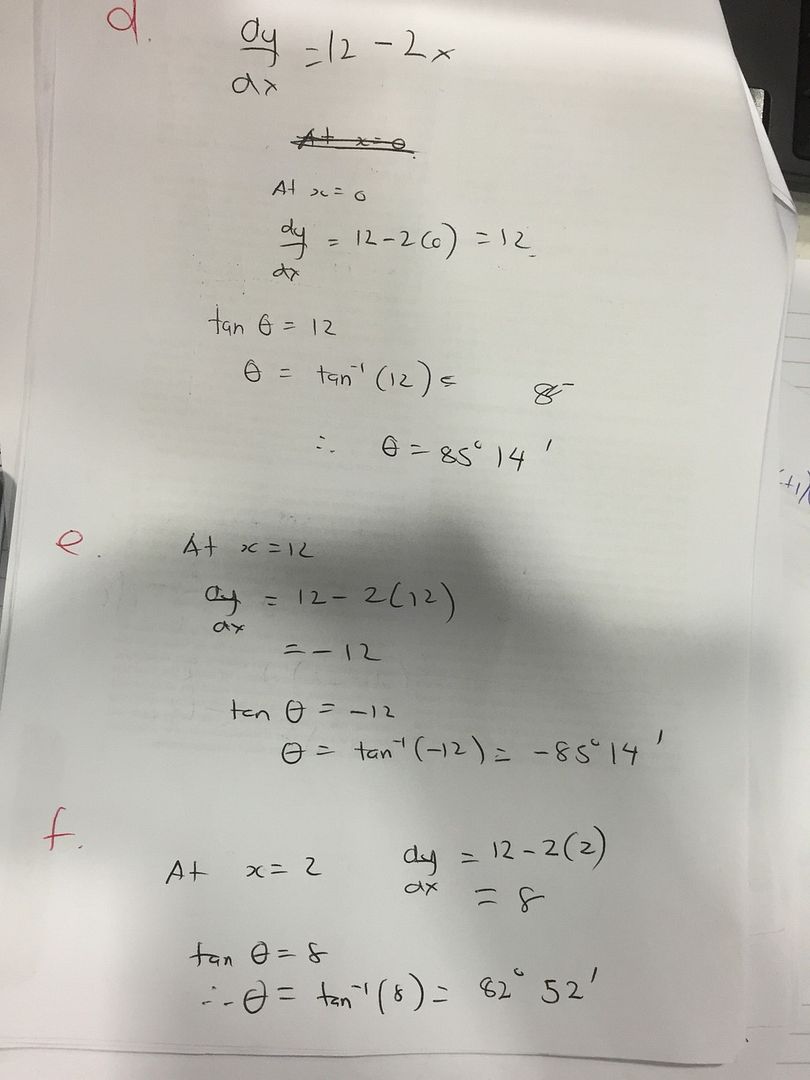 d. dy/dx = 12 - 2x
At x = 0
At x = 0
dy/dx = 12 - 2(0) = 12.
tan θ = 12
θ = tan⁻¹(12) =
∴ θ = 85° 14'
e. At x = 12
dy/dx = 12 - 2(12)
= -12
tan θ = -12
θ = tan⁻¹(-12) = -85° 14'
f.
At x = 2 dy/dx = 12 - 2(2)
= 8
tan θ = 8
∴ θ = tan⁻¹(8) = 82° 52'